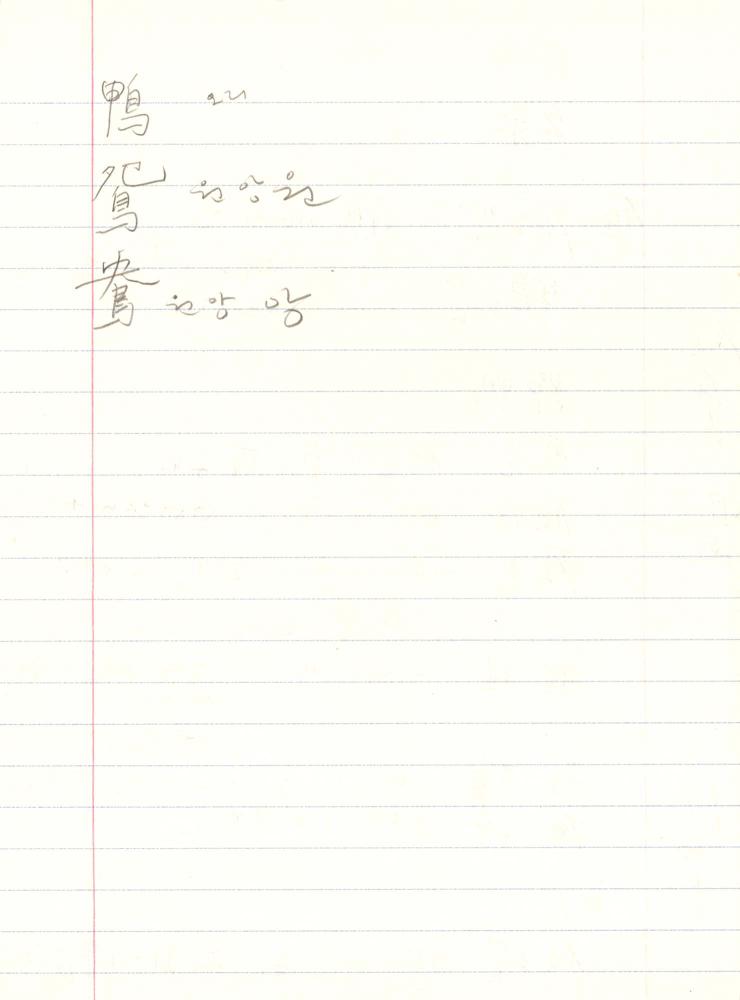 鴨 오리
鴛 원앙 원
鴦 원앙 앙